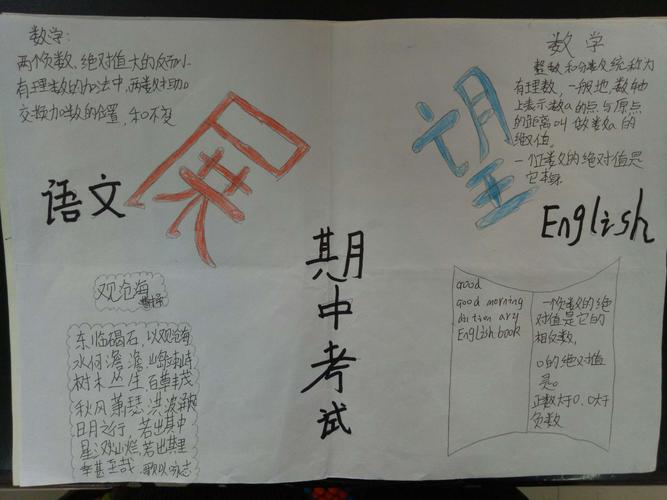 数学:
两个负数,绝对值大的反而小
有理数的加法中,两数相加
交换加数的位置,和不变
展
望
数学
整数和分数统称为
有理数,一般地,数轴
上表示数a的点与原点
的距离叫做数a的
绝对值。
一个正数的绝对值是
它本身
语文
English
期中考试
观沧海
曹操
东临碣石,以观沧海
水何澹澹,山岛竦峙
树木丛生百草丰茂
秋风萧瑟洪波涌起
日月之行,若出其中
星汉灿烂,若出其里
幸甚至哉,歌以咏志
Good
Good morning
dictionary
English book
一个负数的绝
对值是它的
相反数,
0的绝对值
是0
正数大于0,0大于
负数